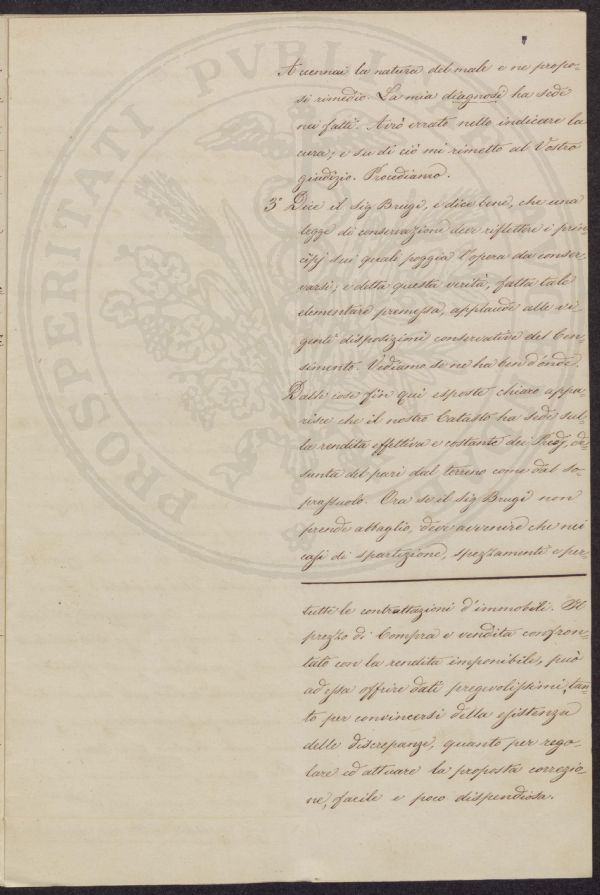 Accennai la natura del male e ne propo-
si rimedio. La mia diagnosi ha sede
nei fatti. Avrò errato nello indicare la
cura, e su di ciò mi rimetto al Vostro
giudizio. Procediamo.
3° Dice il Sig Brugi, e dice bene, che una
legge di conservazione deve riflettere i prin
cipj sui quali poggia l'opera da conser-
varsi; e detta questa verità, fatta tale
elementare premessa, applaude alle vi-
genti disposizioni conservative del Cen-
simento. Vediamo se ne ha ben d'onde.
Dalle cose fin qui esposte chiaro appa-
risce che il nostro Catasto ha sede sul-
la rendita effettiva e costante dei Predj, de-
sunta del pari dal terreno come dal so-
prassuolo. Ora se il Sig Brugi non
prende abbaglio, deve avvenire che nei
casi di spartizione, spezzamenti e per-
tutte le contrattazioni d'immobili. Il
prezzo di Compra e vendita confron-
tato con la rendita imponibile, può
ad essa offrire dati pregevolissimi, tan-
to per convincersi della esistenza
delle discrepanze, quanto per rego-
lare ed attuare la proposta correzio-
ne, facile e poco dispendiosa.
PROSPERITATI PVBLI